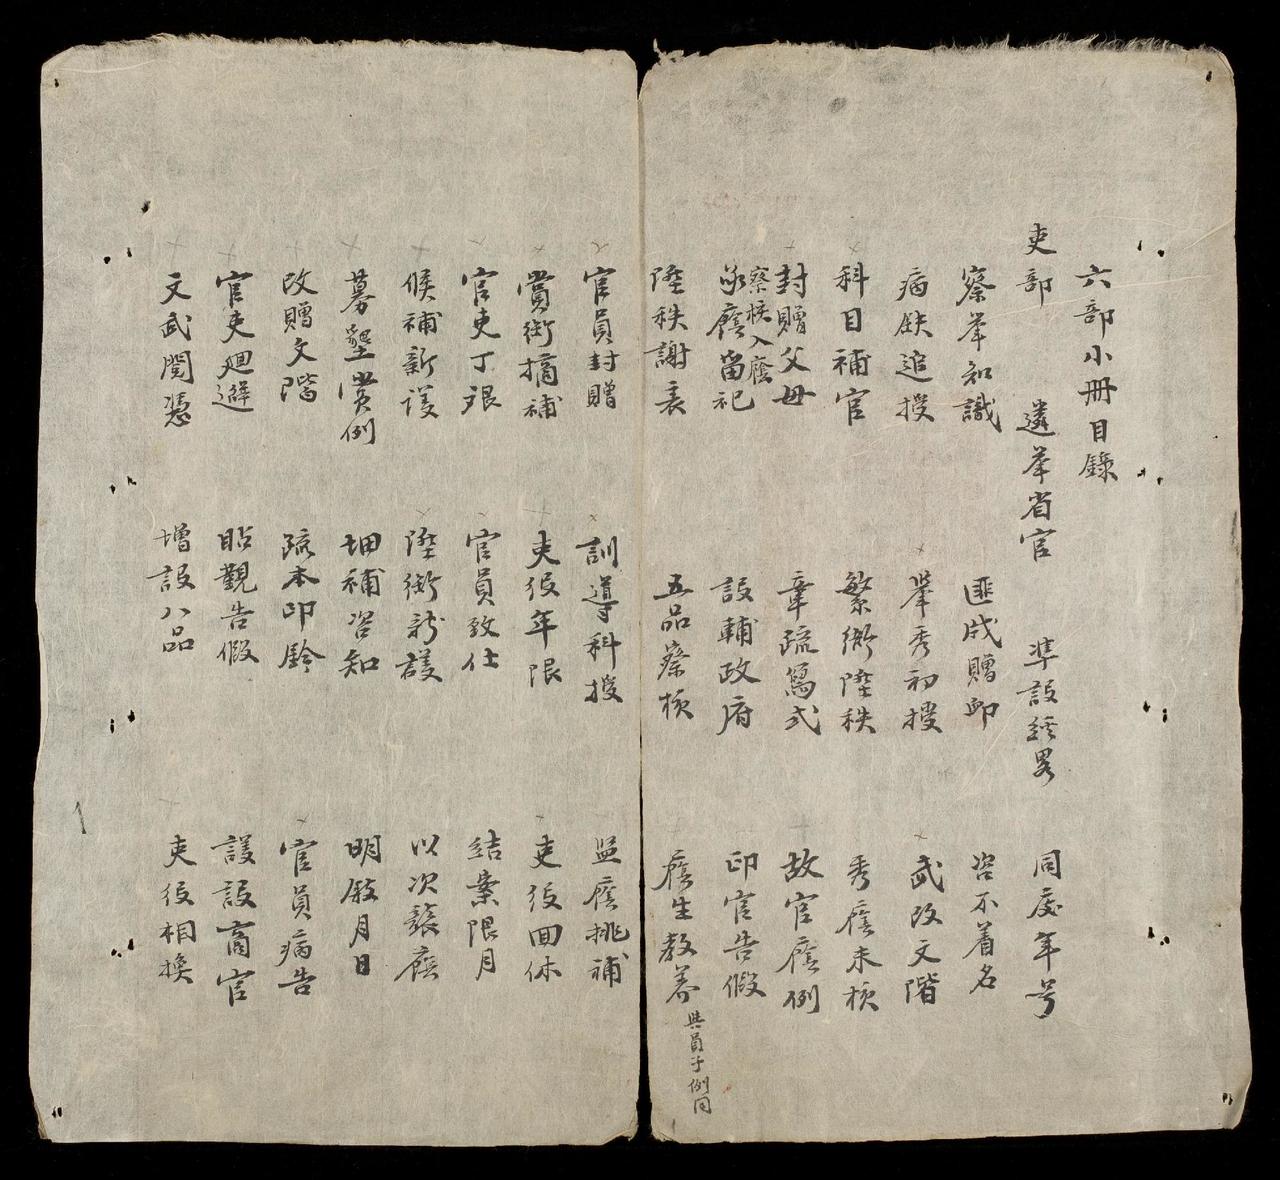 六部小冊目錄
吏部 遴举省官 準設経畧 同處年号
察举知識 匪戕贈卹 咨不着名
病缺追授 举秀初授 武改文階
科目補官 繁銜陞秩 秀廕未核
封贈父母 章疏寫式 故官廕例
察核入廕
承廕畄祀 設輔政府 印官告假
陞秩謝表 五品察核 廕生教养 與員子例同
官員封贈 訓導科授 监廕挑補
賞銜摘補 吏役年限 吏役回休
官吏丁艰 官員致仕 结案限月
候補新设 陞銜新護 以次襲廕
募墾赏例 細補咨知 明叙月日
改贈文階 疏本印鈴 官員病告
官吏廻避 貼觀告假 護設商官
文武関憑 增設八品 吏役相换